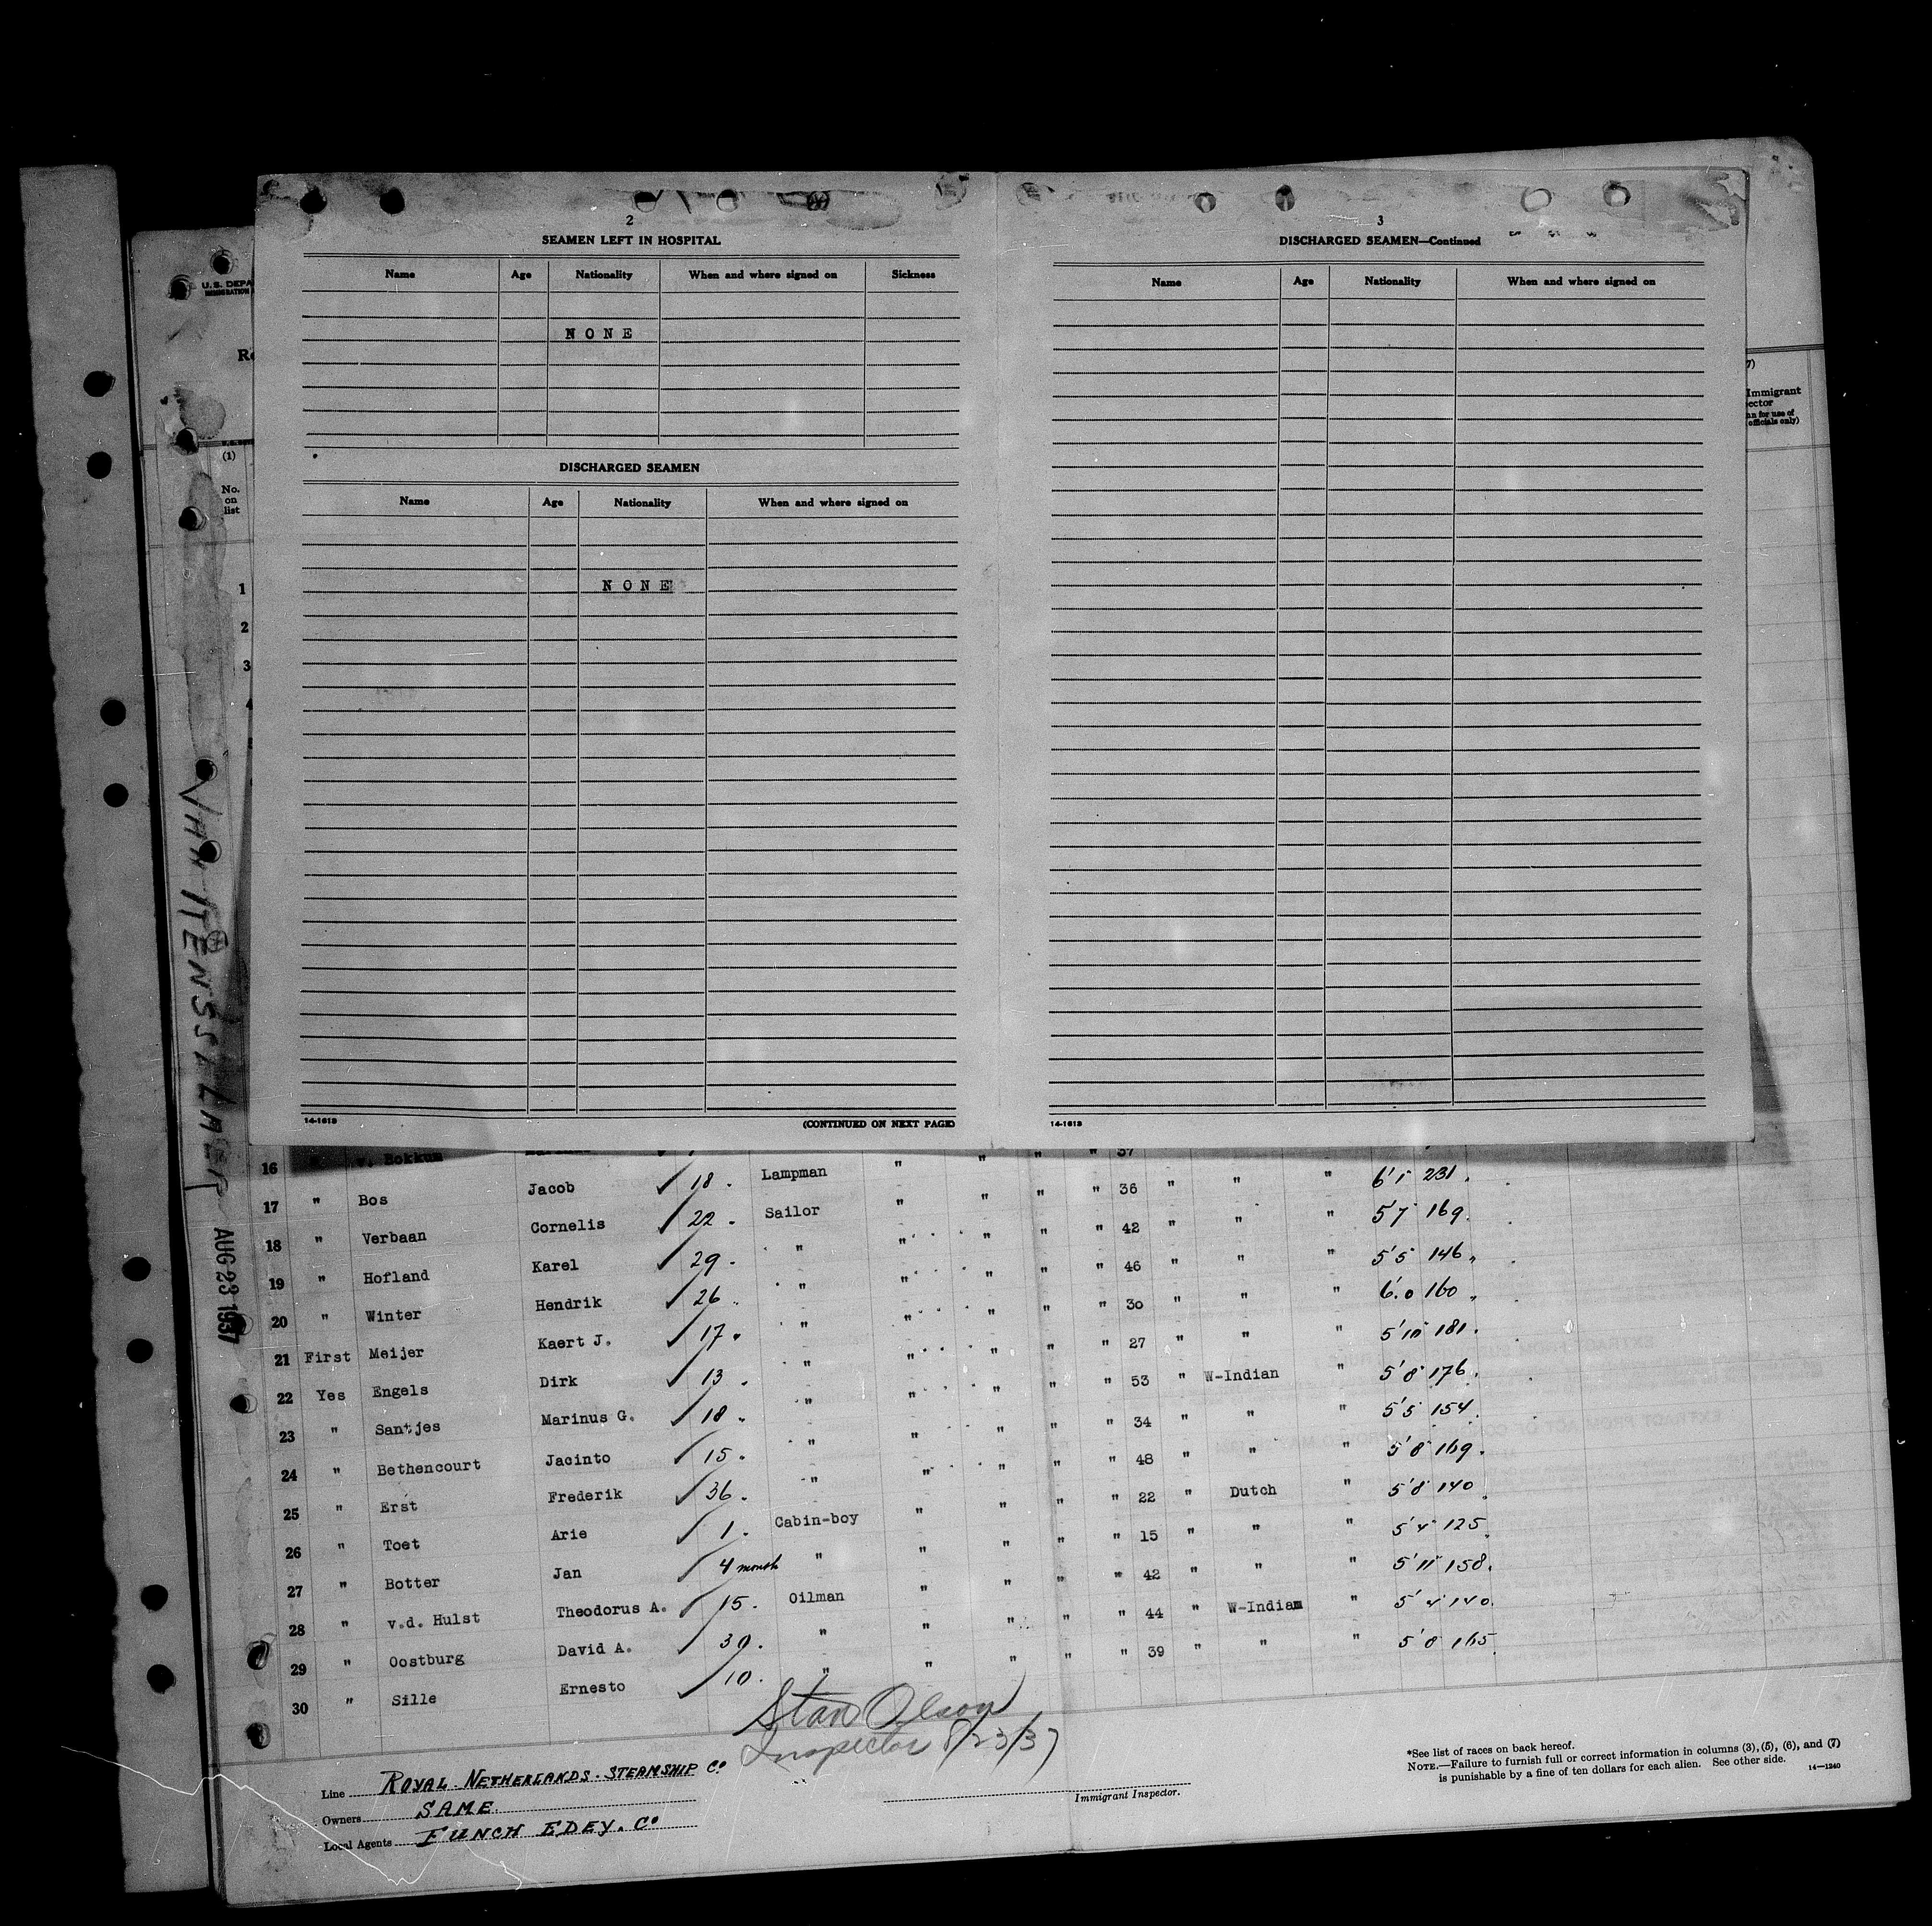 2
SEAMEN LEFT IN HOSPITAL
Name Age Nationality When and where signed on Sickness
NONE
DISCHARGED SEAMEN
Name Age Nationality When and where signed on
NONE
14-1613 (CONTINUED ON NEXT PAGE)
3
DISCHARGED SEAMEN—Continued
Name Age Nationality When and where signed on
14-1613
U.S. DEPA
IMMIGRATION
Re
(1)
No.
on
list
1
2
3
4
7)
Immigrant
ector
n for use of
officials only)
AUG 23 1937
16 v. Bokkum
17 " Bos Jacob 18 Lampman " " " 37
18 " Verbaan Cornelis 22 Sailor " " " " 36 " " " 6'1" 231
19 " Hofland Karel 29 " " " " " 42 " " " 5'7" 169
20 " Winter Hendrik 26 " " " " " 46 " " " 5'5" 146
21 First Meijer Kaert J. 17 " " " " " 30 " " " 6'.0 160
22 Yes Engels Dirk 13 " " " " " 27 " " " 5'10" 181
23 " Santjes Marinus G. 18 " " " " " 53 " W-Indian " 5'8" 176
24 " Bethencourt Jacinto 15 " " " " " 34 " " " 5'5" 154
25 " Erst Frederik 36 " " " " " 48 " " " 5'8" 169
26 " Toet Arie 1 Cabin-boy " " " " 22 " Dutch " 5'8" 140
27 " Botter Jan 4 month " " " " " 15 " " " 5'4" 125
28 " v.d. Hulst Theodorus A. 15 Oilman " " " " 42 " " " 5'11" 158
29 " Oostburg David A. 39 " " " " " 44 " W-Indian " 5'4 140
30 " Sille Ernesto 10 " " " " " 39 " " " 5'8 165
Stan Olson
Inspector 8/23/37
Line ROYAL NETHERLANDS STEAMSHIP Co
Owners SAME
Local Agents FUNCH EDEY. Co
Immigrant Inspector.
*See list of races on back hereof.
NOTE.—Failure to furnish full or correct information in columns (3), (5), (6), and (7)
is punishable by a fine of ten dollars for each alien. See other side. 14—1240